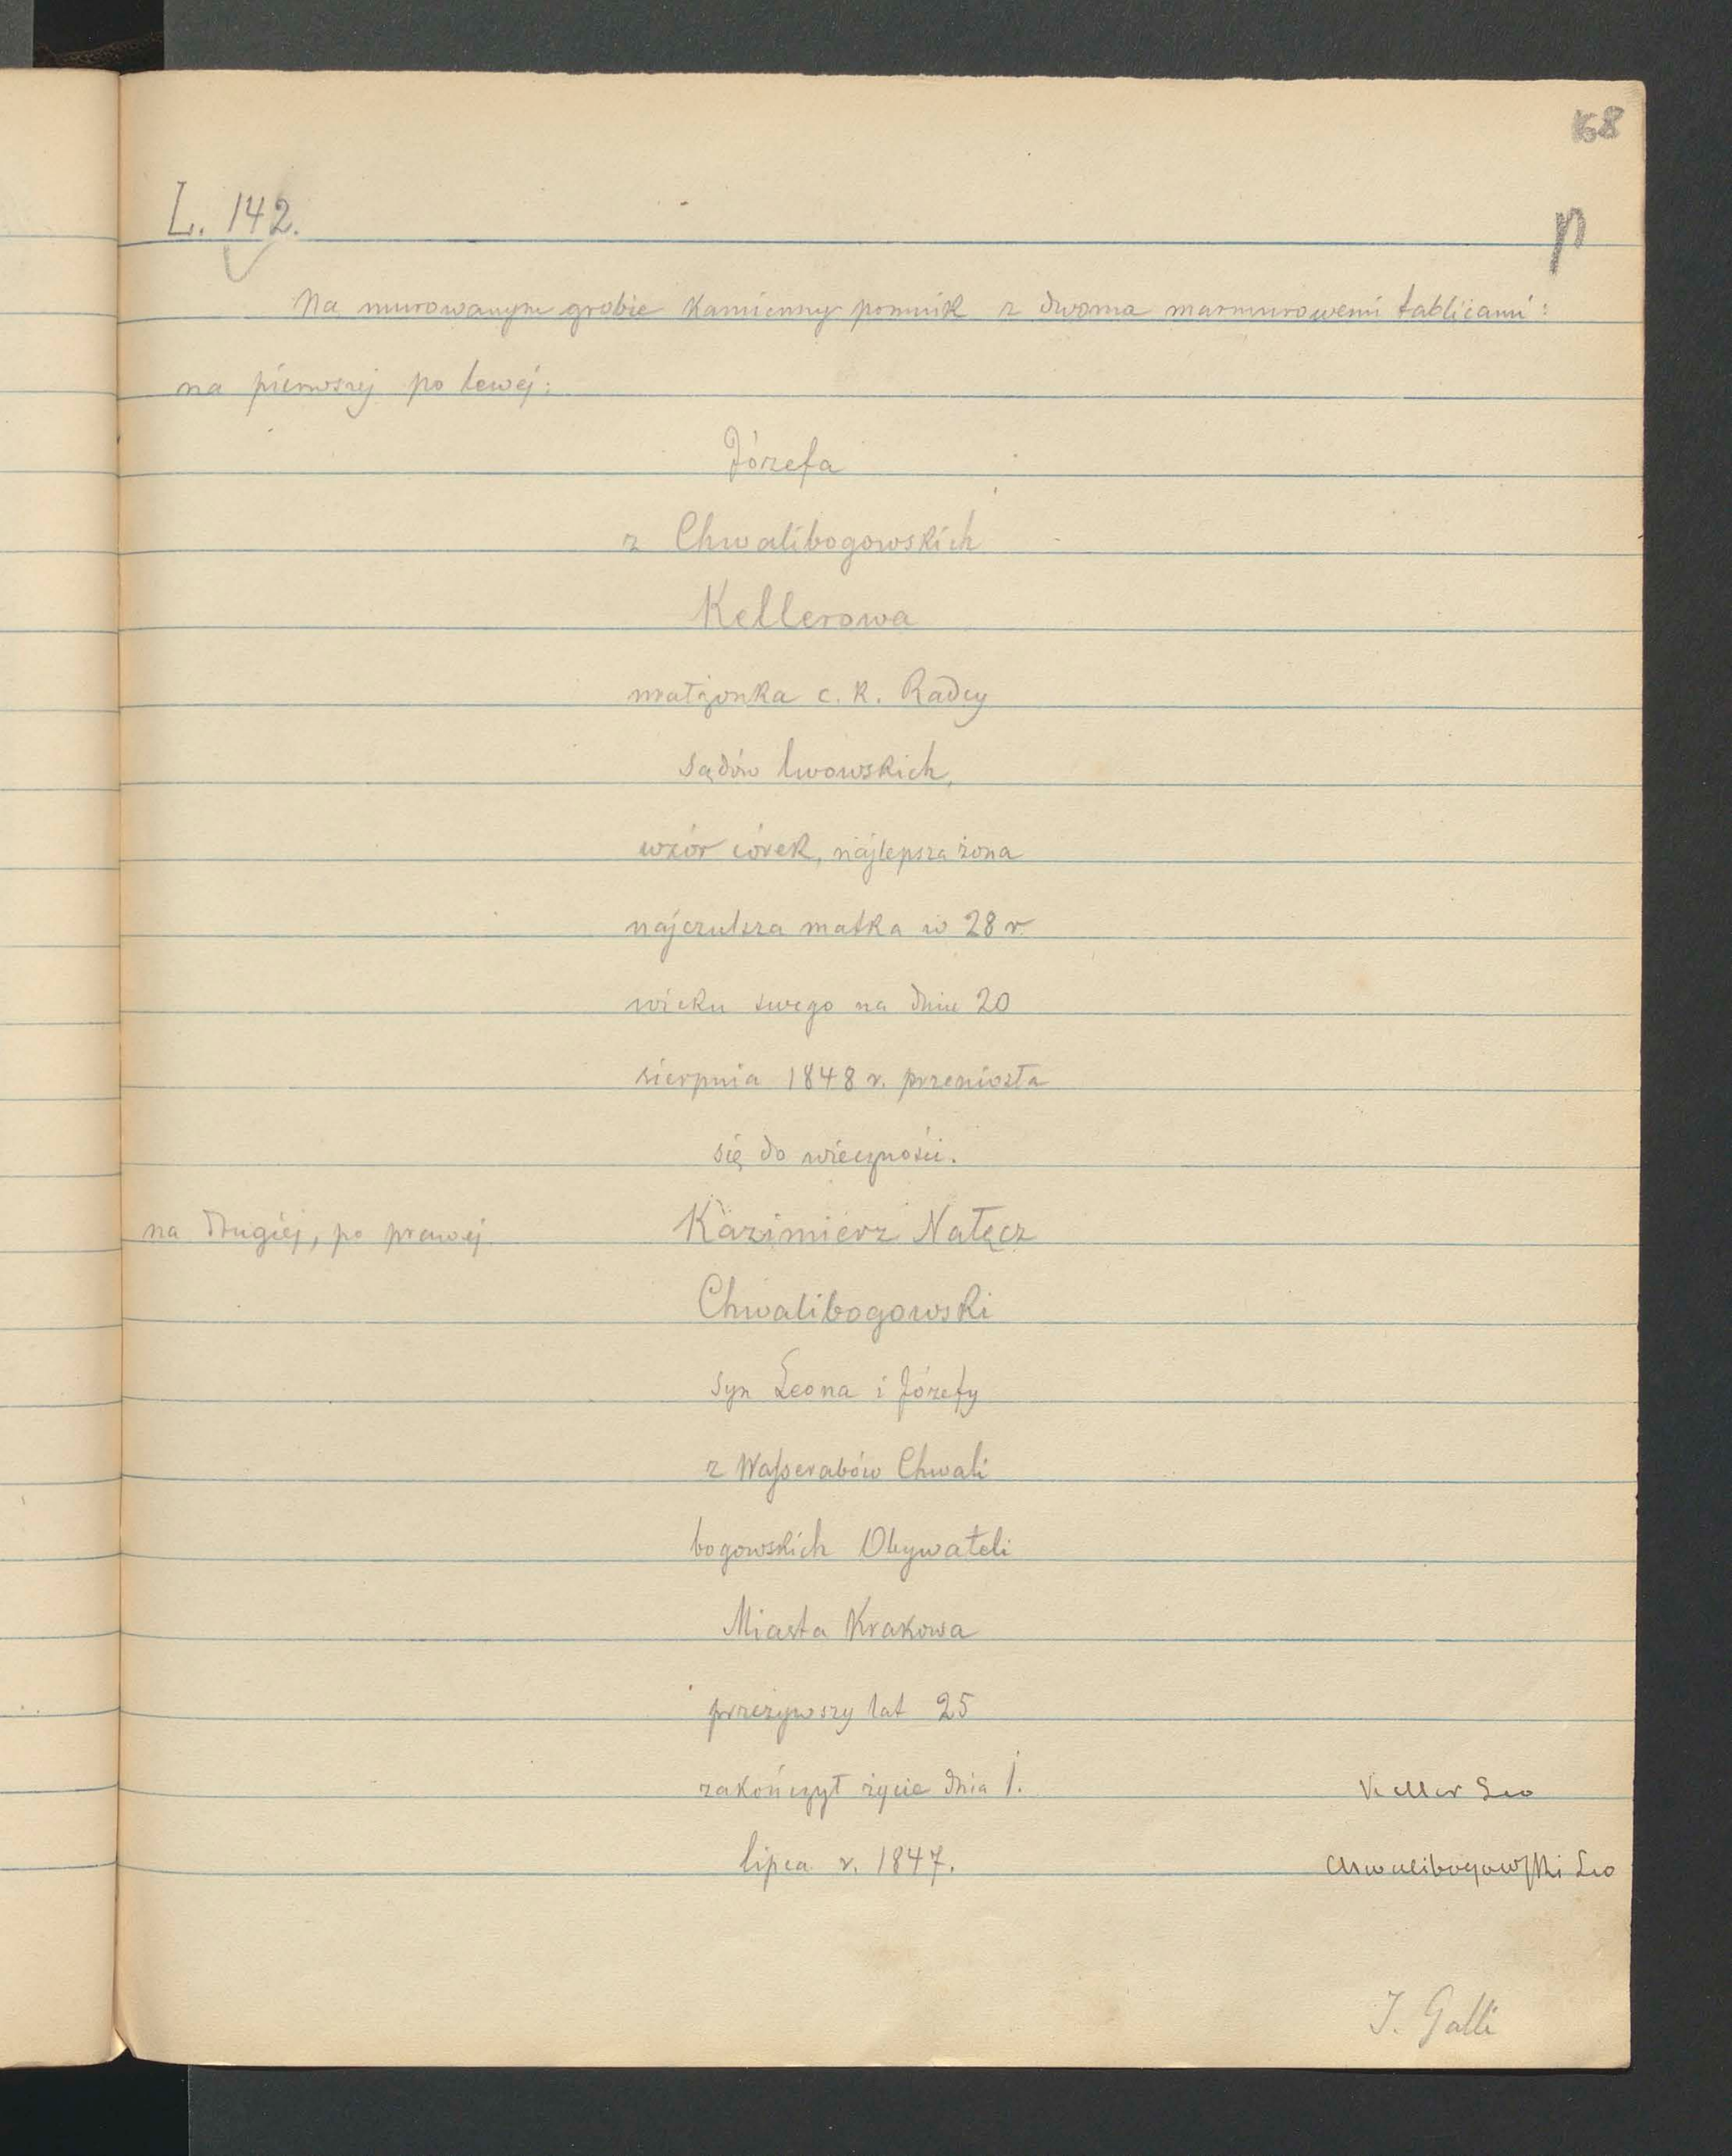 168
L. 142.
p
Na murowanym grobie kamienny pomnik z dwoma marmurowemi tablicami:
na pierwszej po lewej:
Józefa
z Chwalibogowskich
Kellerowa
małżonka c. k. Radcy
sądów lwowskich,
wzór córek, najlepsza żona
najczulsza matka w 28 r.
wieku swego na dniu 20
sierpnia 1848 r. przeniosła
się do wieczności.
na drugiej, po prawej Kazimierz Nałęcz
Chwalibogowski
syn Leona i Józefy
z Wasserabów Chwali
bogowskich Obywateli
Miasta Krakowa
przeżywszy lat 25
zakończył życie dnia 1.
lipca r. 1847.
Keller Leo
Chwalibogowski Leo
J. Galli